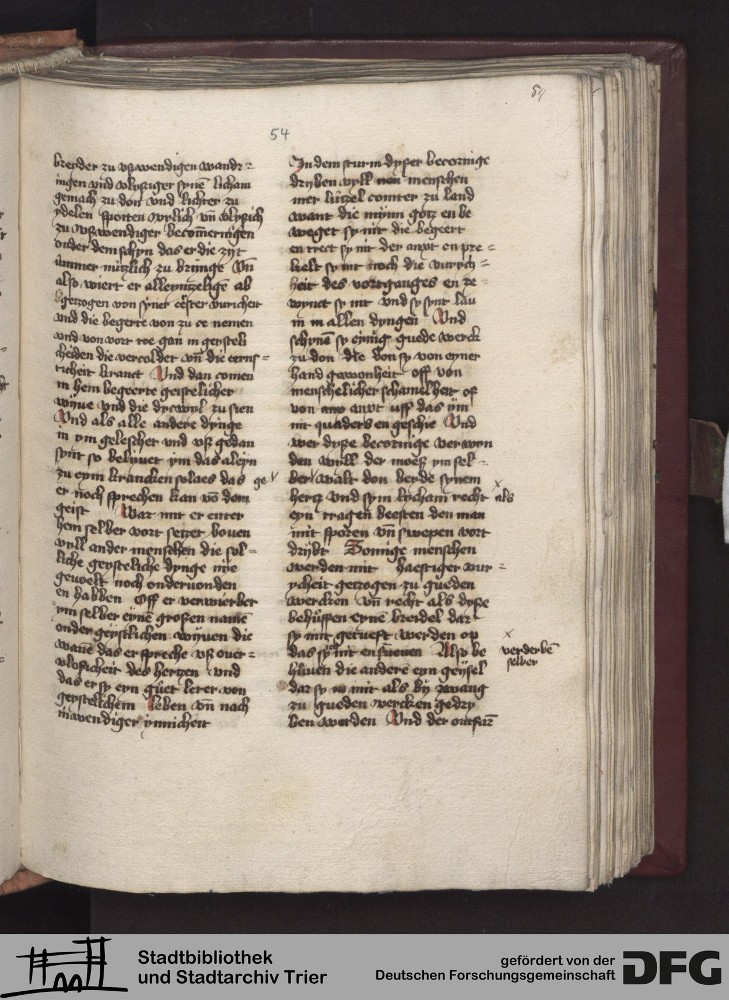 54
54
breyder zu vswendigen wandr=
ingen vnd vlysziger synē licham
gemach zu don vnd lichter zu
ydelen spotten vrylich vn̄ vlyszich
zu vswendiger becom̄ernigen
onder dem schyn das er die zyt
ummer nützlich zu bringe Vn̄
also wiert er alleynzelige ab
getzogen von syner eester vuricheit
vnd die begerte von zu ce nemen
vnd von vort zoe gan in geysteli
cheiden die vercoldet vn̄ die eerns=
ticheit kranct Vnd dan comen
in hem begeerte geistelicher
wyue vnd die dycwyl zu sien
Vnd als alle andere dynge
in ym gelescher vnd vsz gedan
synt so belyuet ym das aleyn
zu eym krancken solaes das ge
er noch sprechen kan vō dem
geist War mit er enter
hem selber vort setzet bouen
vyll ander menschen die sol=
liche geysteliche dynge nye
geuoelt noch onderuonden
en habben Off er verwierbet
ym selber eynē groszen name
onder geystlichen wyuen die
wane das er spreche vsz ouer=
vlosicheit des hertzen vnd
das er sy eyn güet lerer von
geystelichem leben vn̄ nach
inwendiger ynnicheit
In dem sturm dyszer becoringe
dryben vyll menschen
mer lützel comter zu land
want die mynn gotz en be
weget sy nit die begeert
en trect sy nit der anxt en pre=
kielt sy nit noch die vurych=
heit des vortganges en ze=
wynct sy nit vnd sy synt lau
in in allen dyngen Vnd
schynē sy eynig guede werck
zu don die don sy von eyner
hand gewonheit off von
menschelicher schamelheit off
von anxt uff das ym
nit quaders en geschie Vnd
wer dysze becoringe verwyn
den wyll der moesz ym sel=
ber walt don beyde synem
hertz vnd sym lycham recht als
eyn tragen beesten den man
mit sporen vn̄ swepen vort
drybt Somige menschen
werden mit haestiger vur=
ycheit getzogen zu gueden
wercken vn̄ recht als dysze
behüffen eyne breydel dar
sy mit getueft werden op
das sy nit en Also be verderbē
selber
hüuen die andere eyn geysel
dar sy mit als by zwang
zu gueden wercken gedry
ben werden Vnd der
Stadtbibliothek
und Stadtarchiv Trier
gefördert von der
Deutschen Forschungsgemeinschaft
DFG